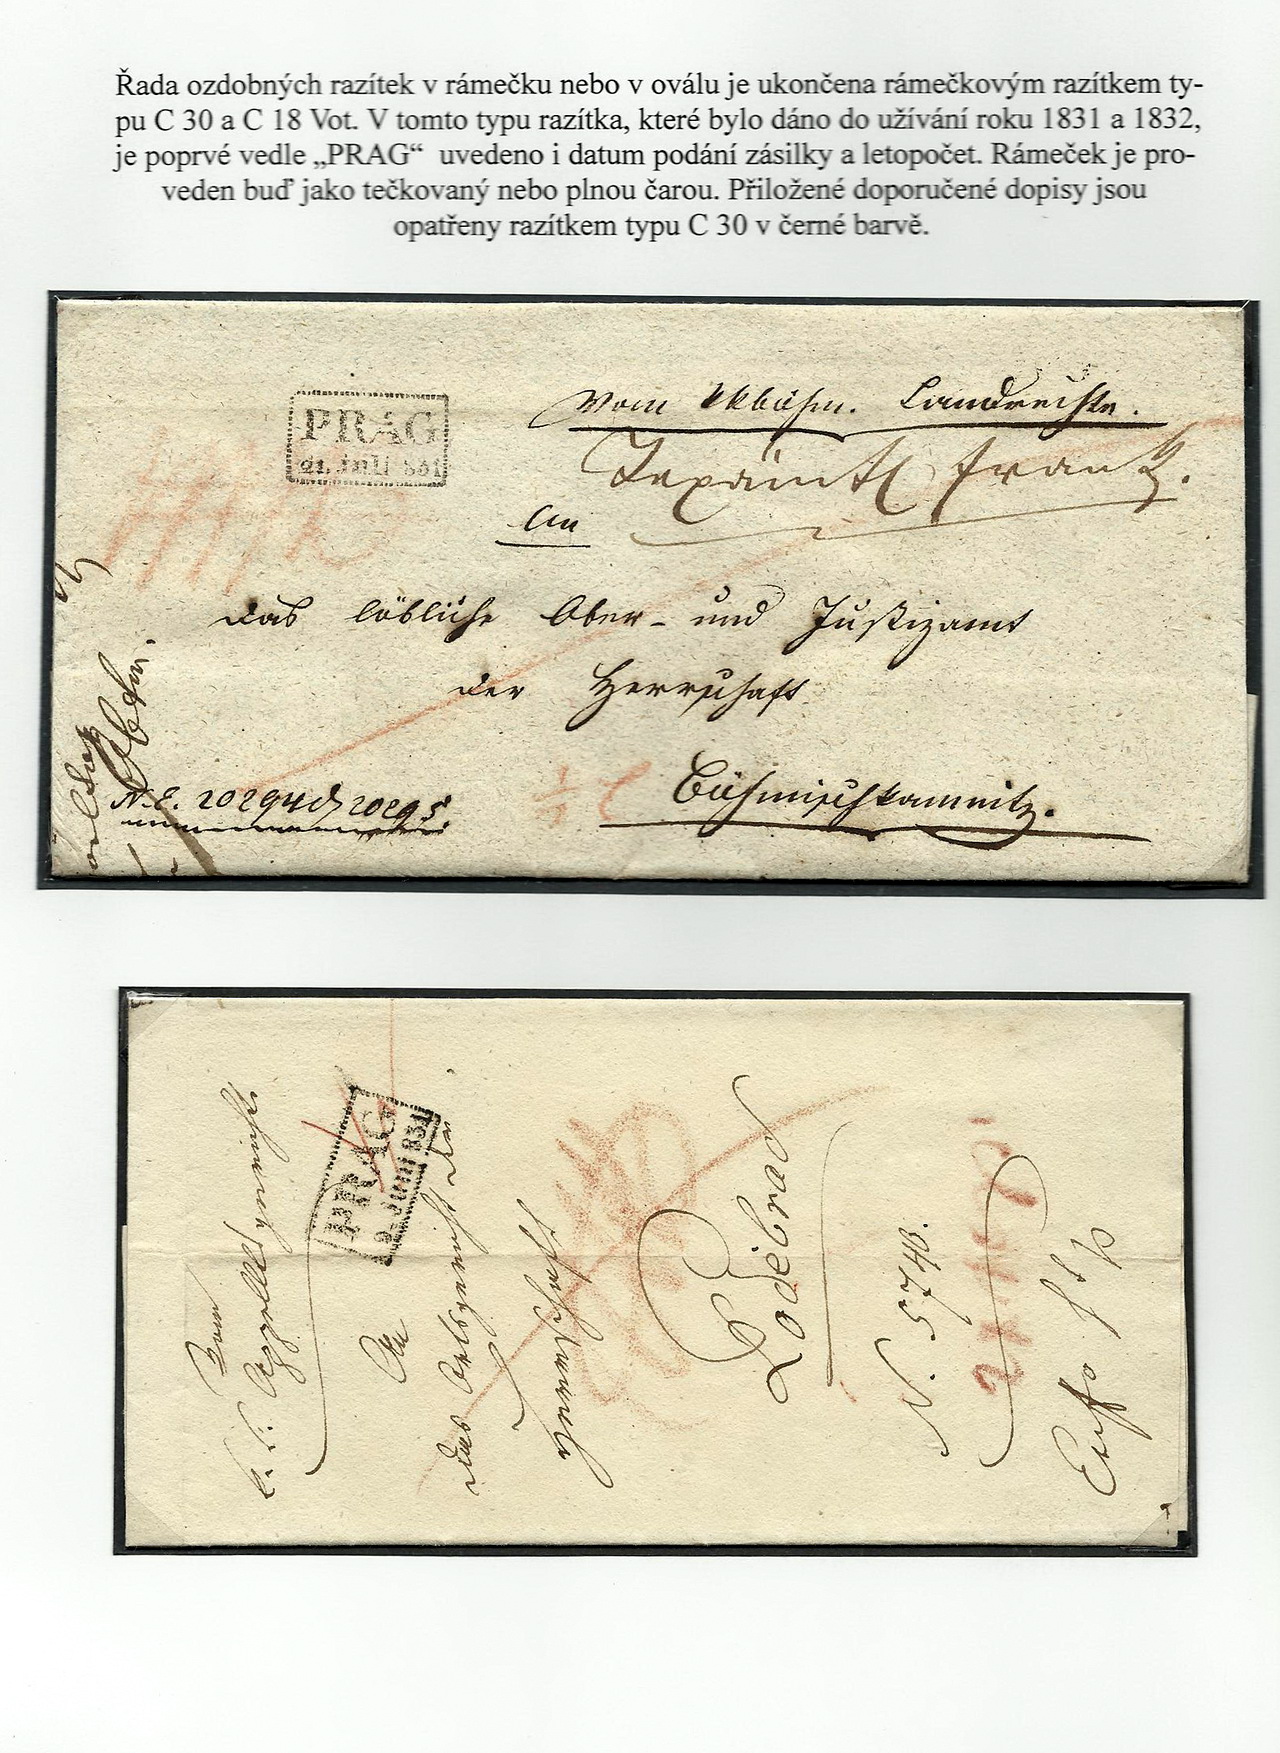 Řada ozdobných razítek v rámečku nebo v oválu je ukončena rámečkovým razítkem ty-
pu C 30 a C 18 Vot. V tomto typu razítka, které bylo dáno do užívání roku 1831 a 1832,
je poprvé vedle „PRAG“ uvedeno i datum podání zásilky a letopočet. Rámeček je pro-
veden buď jako tečkovaný nebo plnou čarou. Přiložené doporučené dopisy jsou
opatřeny razítkem typu C 30 v černé barvě.
PRAG
21. Juli 831
Vom kkböhm. Landrechte.
An
das löbliche Ober- und Justizamt
der Herrschaft
Böhmischkamnitz.
N.E. 20294 20295.
Vom
k. k. Appellgerichte
PRAG
Juni 831
An
das Ortsgericht der
Herrschaft
Podiebrad
N. 5740.